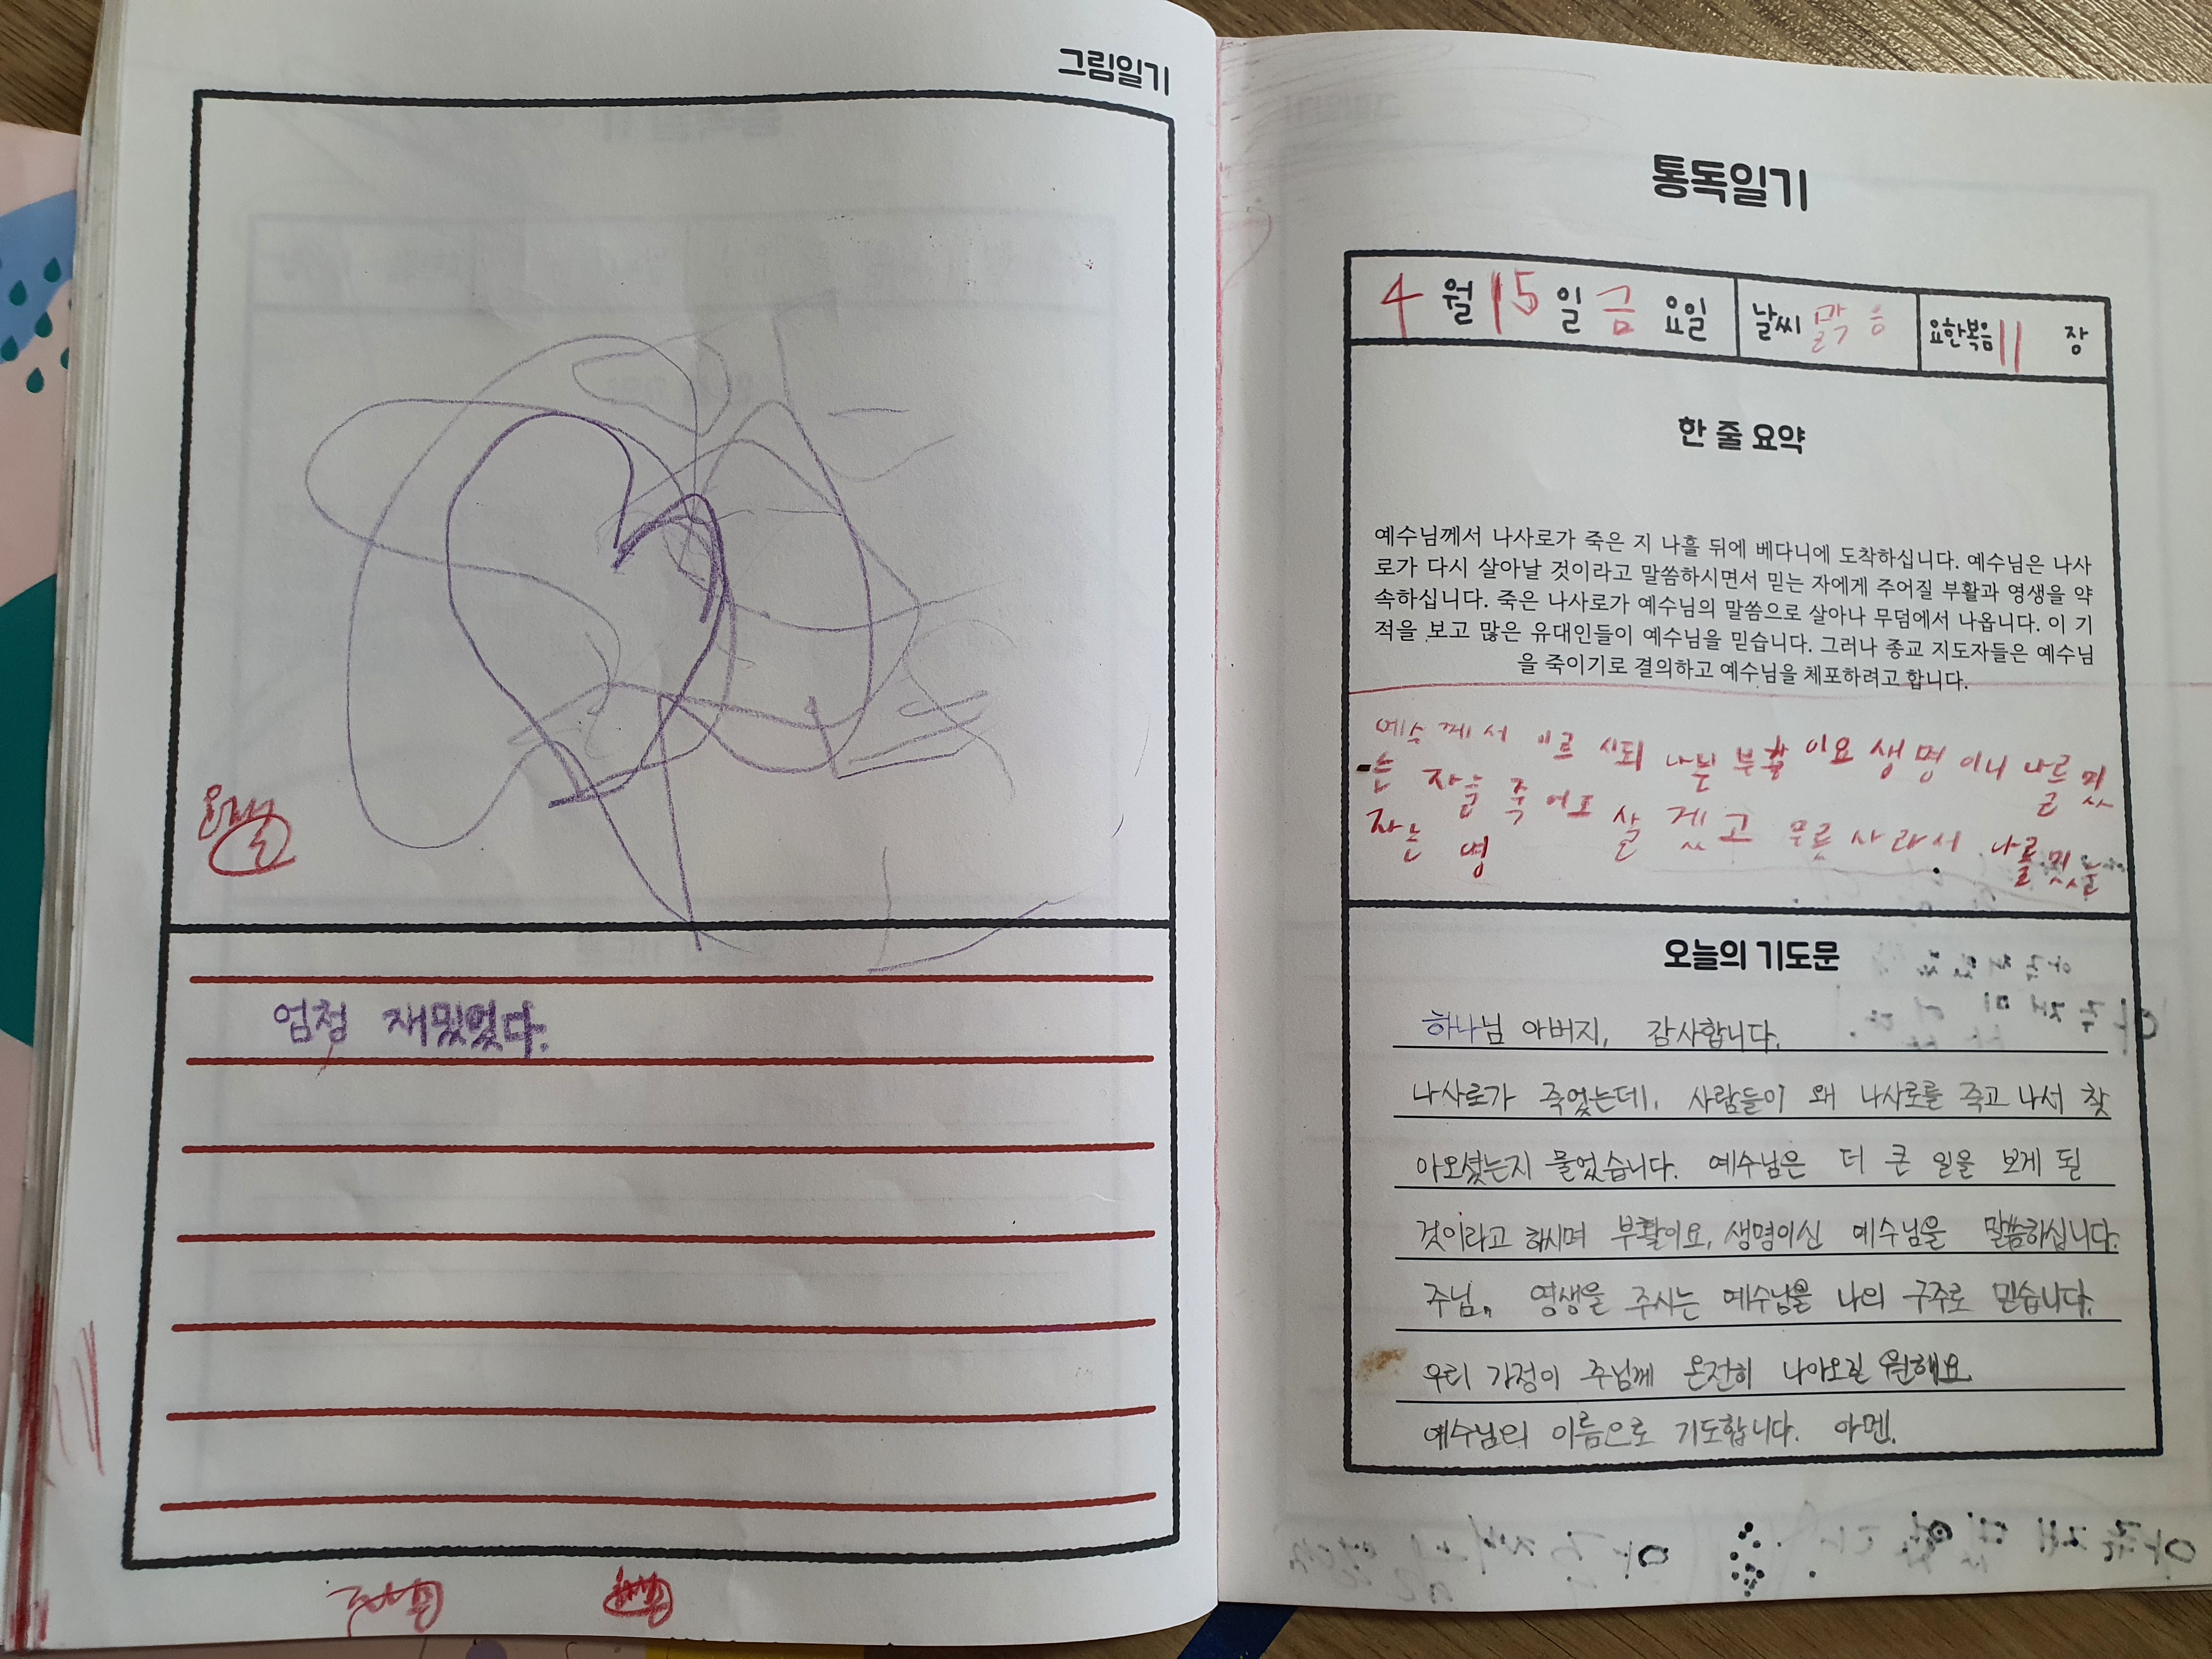 그림일기
엄청 재밌었다.
통독일기
4월 15일 금요일 날씨 맑음 요한복음 11 장
한 줄 요약
예수님께서 나사로가 죽은 지 나흘 뒤에 베다니에 도착하십니다. 예수님은 나사
로가 다시 살아날 것이라고 말씀하시면서 믿는 자에게 주어질 부활과 영생을 약
속하십니다. 죽은 나사로가 예수님의 말씀으로 살아나 무덤에서 나옵니다. 이 기
적을 보고 많은 유대인들이 예수님을 믿습니다. 그러나 종교 지도자들은 예수님
을 죽이기로 결의하고 예수님을 체포하려고 합니다.
예수께서 이르시되 부활이요 생명이니 나를
죽어도 살겠고 나를
자는 영
오늘의 기도문
하나님 아버지, 감사합니다.
나사로가 죽었는데, 사람들이 왜 나사로를 죽고 나서 찾
아오셨는지 물었습니다. 예수님은 더 큰 일을 보게 될
것이라고 하시며 부활이요, 생명이신 예수님을 말씀하십니다.
주님, 영생을 주시는 예수님을 나의 구주로 믿습니다.
우리 가정이 주님께 온전히 나아오길 원해요
예수님의 이름으로 기도합니다. 아멘.